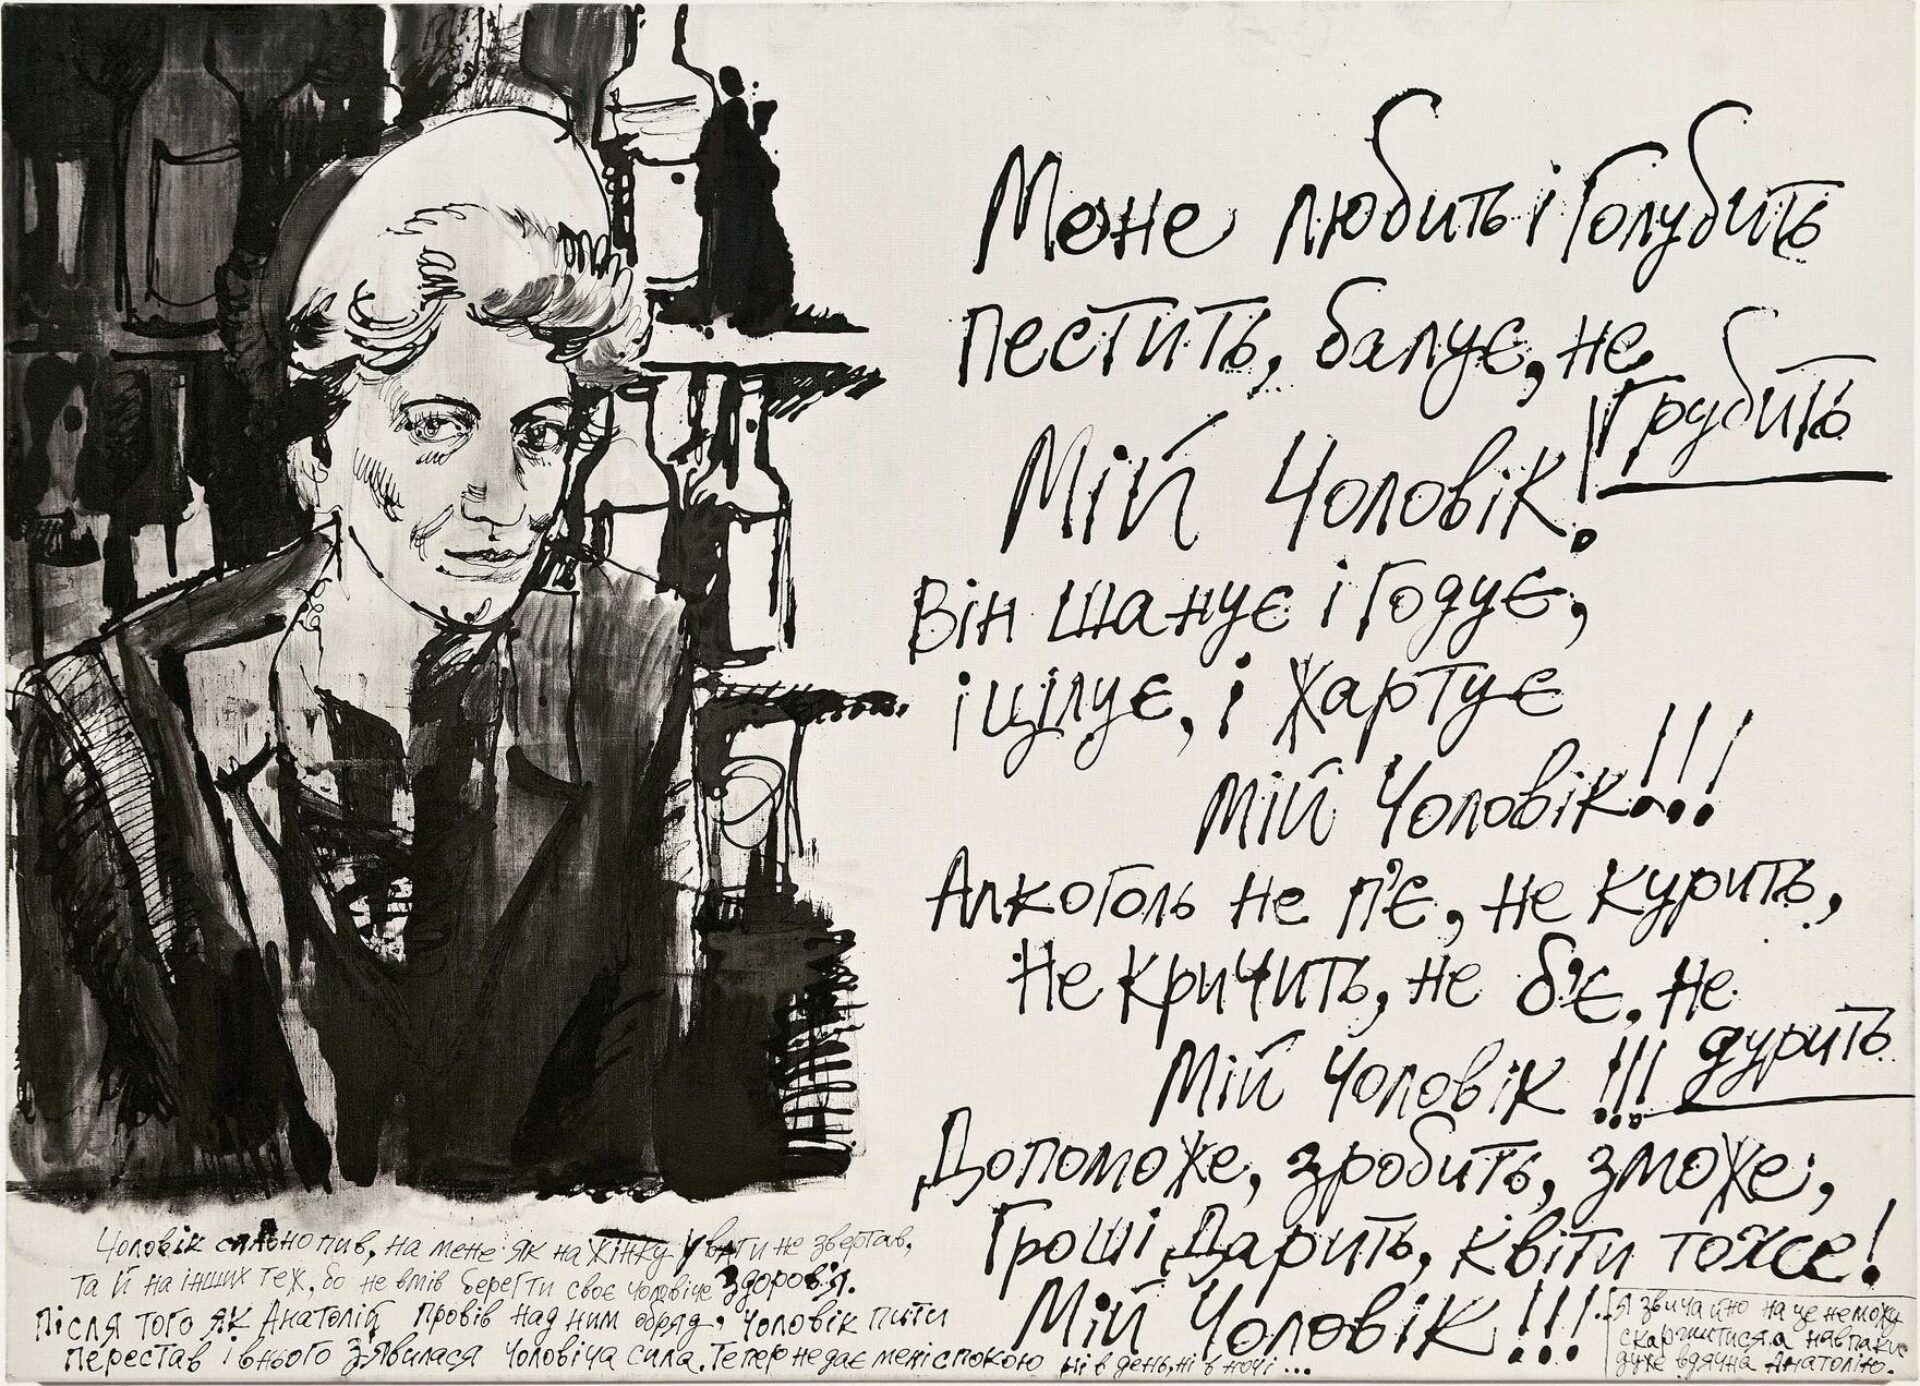 Мене любить і Голубить
пестить, балує, не
Грубить
Мій Чоловік!
Він шанує і Годує,
і цілує, і жартує
Мій Чоловік!!!
Алкоголь не п'є, не курить,
Не кричить, не б'є, не
дурить
Мій Чоловік!!!
Допоможе, зробить, зможе,
Гроші Дарить, квіти тоже!
Мій Чоловік!!!
Чоловік сильно пив, на мене як на жінку уваги не звертав,
та й на інших теж, бо не вмів берегти своє чоловіче здоров'я.
Після того як Анатолій провів над ним обряд, чоловік пити
перестав і в нього з'явилася чоловіча сила. Тепер не дає мені спокою ні в день, ні в ночі...
Я звичайно на це не можу
скаржитися, а навпаки
дуже вдячна Анатолію.